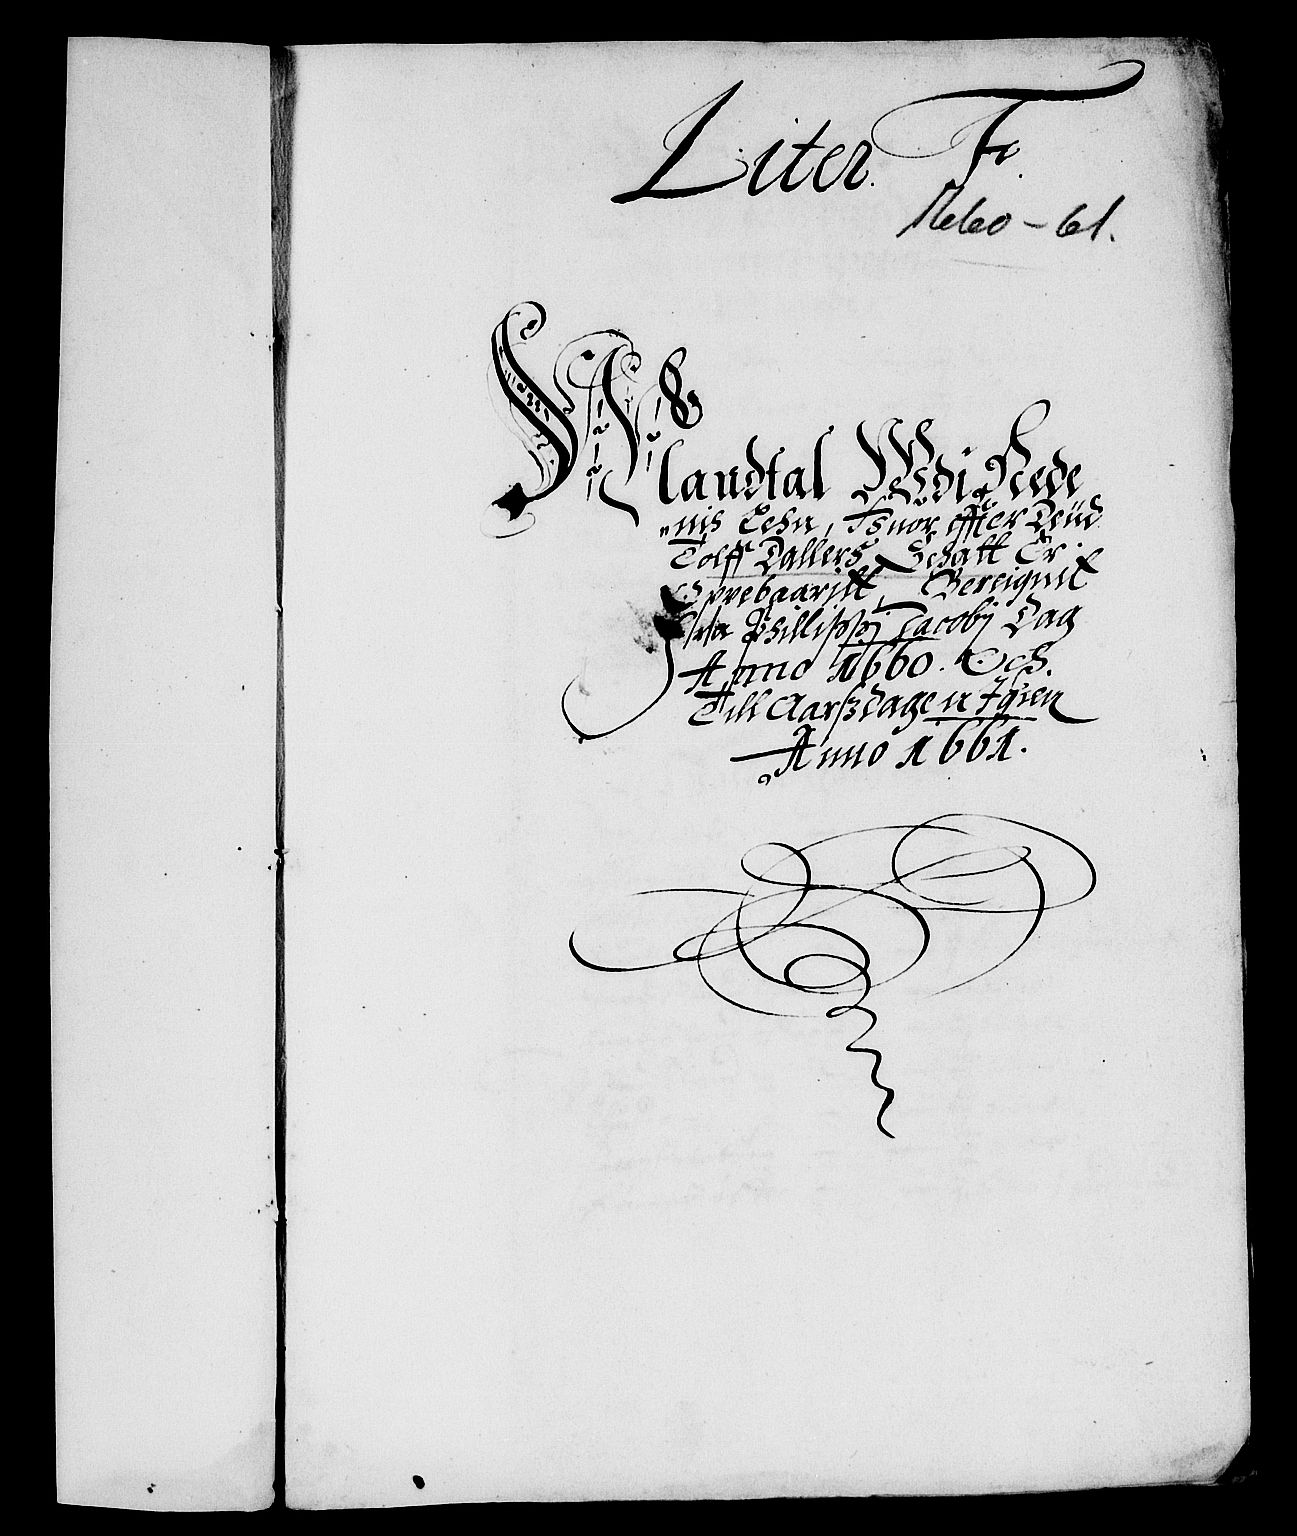 Liter. F.
1660-61.
Mandtal Wdi Nede
„nis Lehn, Huor effter Den
Tolff Dallers Schatt Er
Oppebaaritt, Beregnit
fra Phillippi Jacobj Dag
Anno 1660. Och
Till Aarsdagen Igien
Anno 1661.